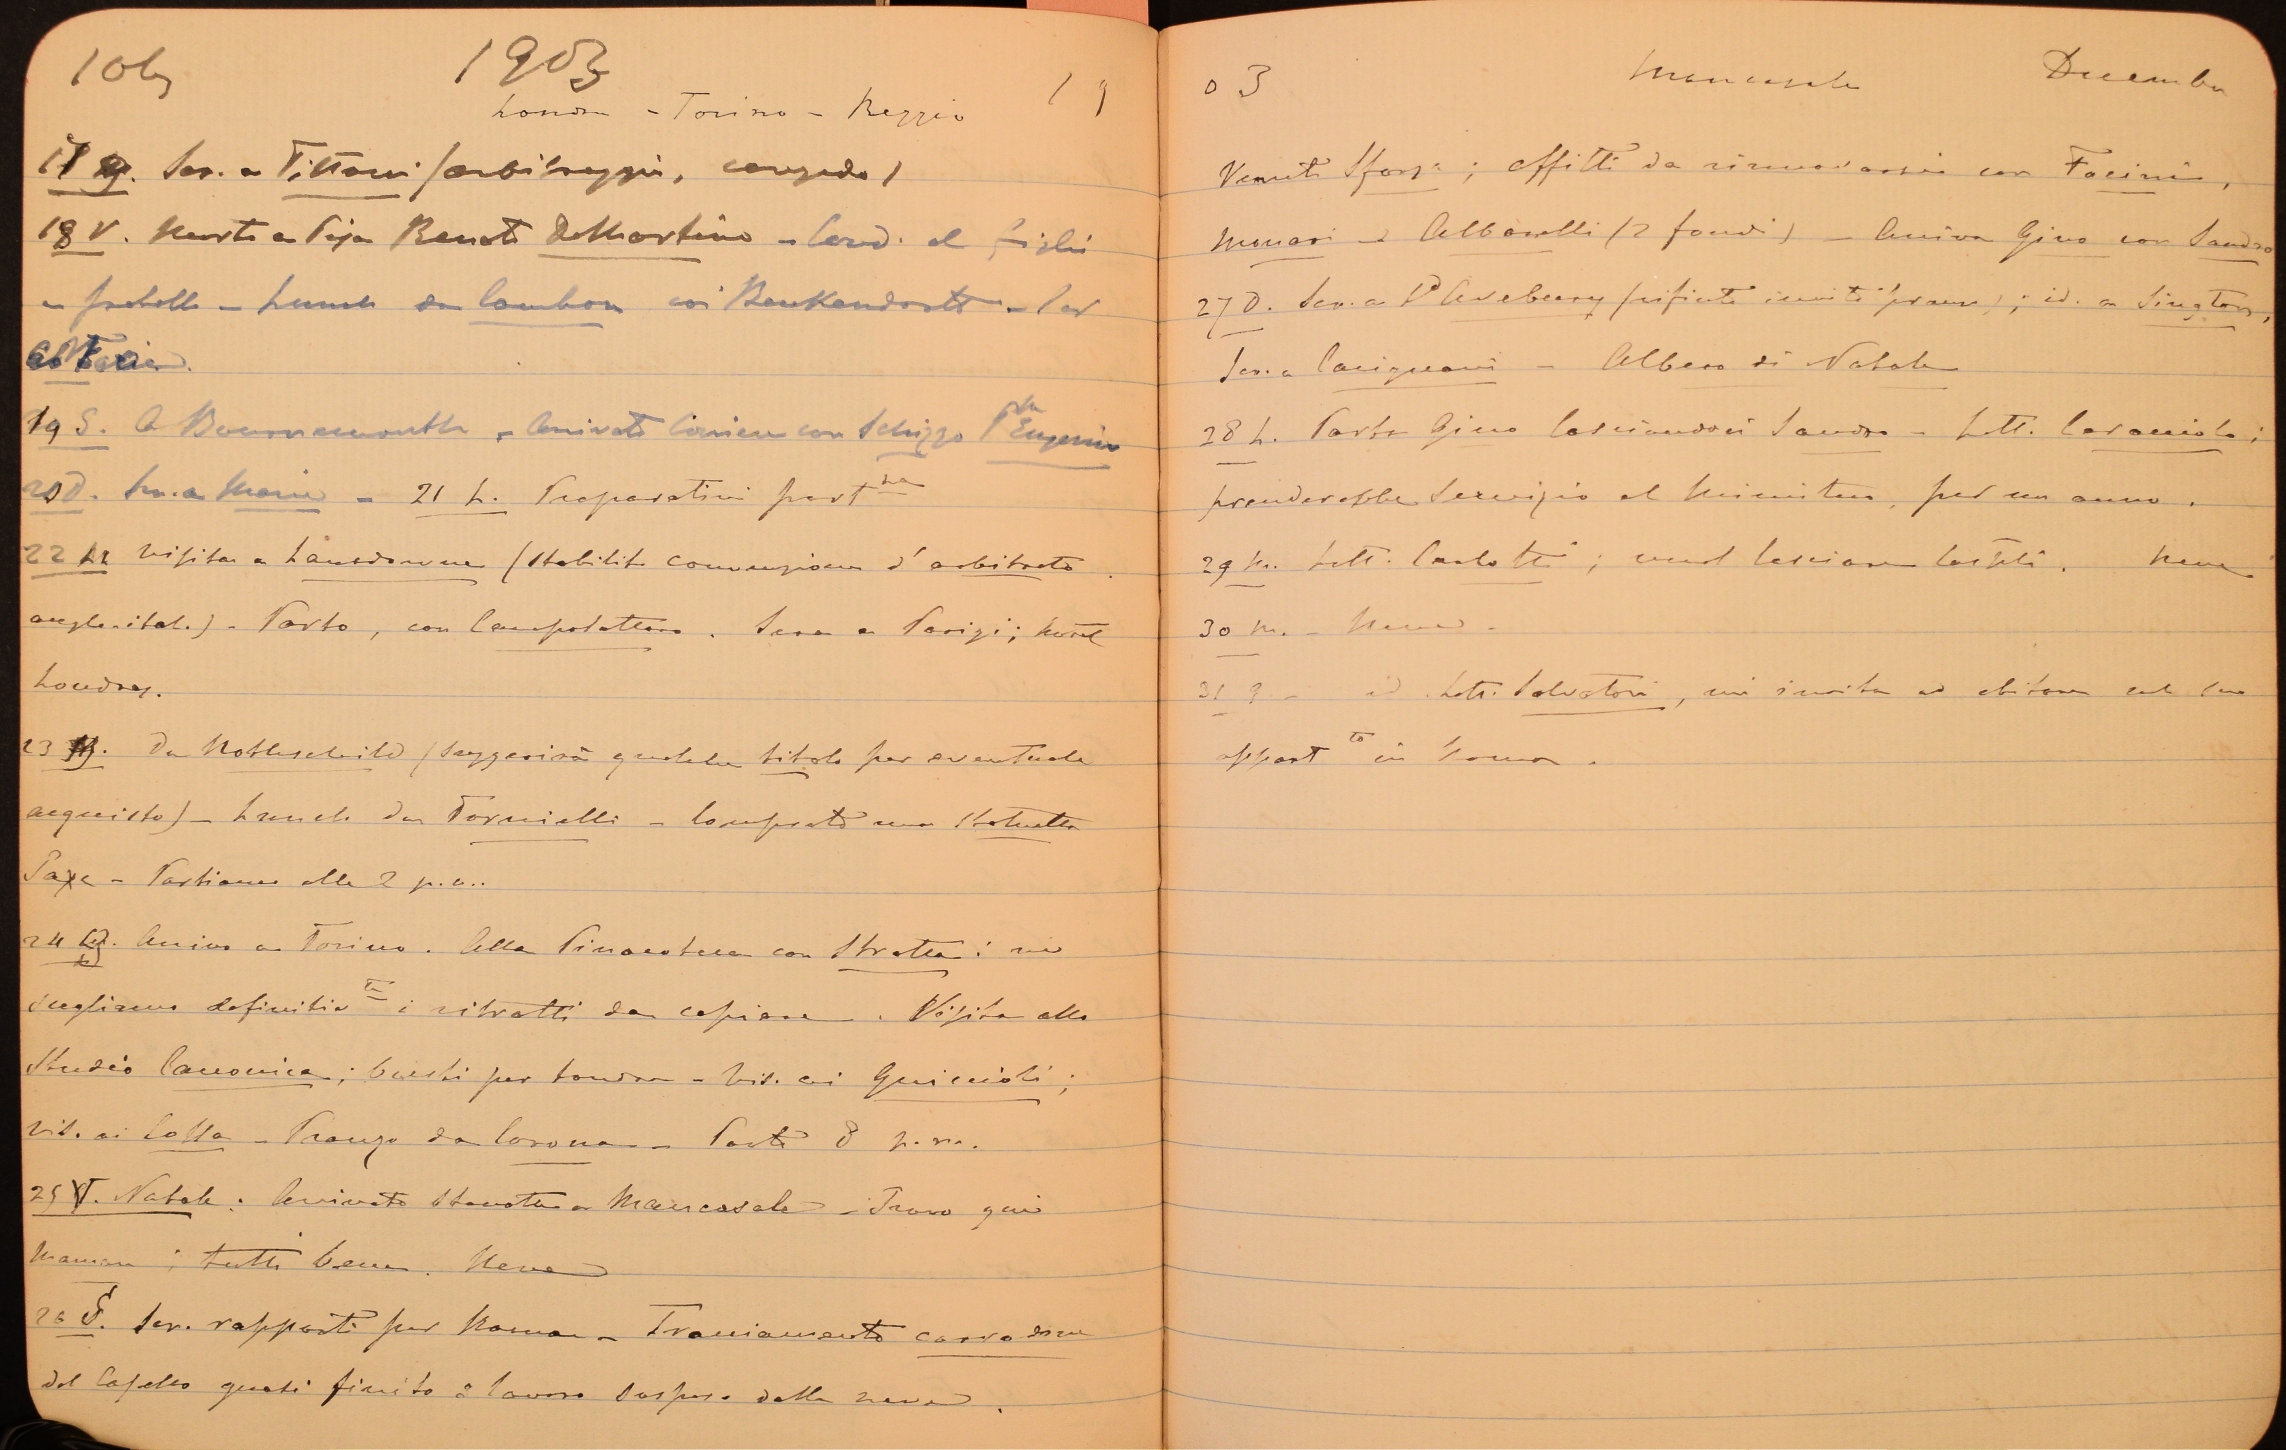 1903
Londra - Torino - Reggio 19
17 g. Scr. a Tittoni (arbitraggio, congedo)
18 V. Morto a Pisa Renato DeMartino - Cond. al figlio
e fratello - Lunch da Cambon coi Benkendorff - Scr
19 S. A Bournemouth - Arrivato Corriere con schizzo Pe Eugenio
20 D. Scr. a Maria - 21 L. Preparativi partza
22 M visita a Lansdowne (stabilita convenzione d'arbitrato
anglo-ital.) - Parto, con Campolattaro. Sera a Parigi; hotel
Londres.
23 M. Da Rothschild (suggerirà qualche titolo per eventuale
acquisto) - Lunch da Tornielli - Comprato una statuetta
Saxe - Partiamo alle 2 p.m.
24 G. Arrivo a Torino. Alla Pinacoteca con Stratta: ne
scegliamo definitivte i ritratti da copiare. Visita allo
Studio Canonica; busti per Londra - Vis. ai Guiccioli;
vis. ai Cossa - Pranzo da Corona - Parto 8 p.m.
25 V. Natale. Arrivato stanotte a Mancasale - Trovo qui
Maman; tutti bene. Neve
26 S. Scr. rapporti per Roma - Tracciamento carradone
del Casello quasi finito e lavoro sospeso dalla neve.
03 Mancasale Decembre
Venuto Sforza; affitti da rinnovarsi con Facini,
Monari e Albarelli (2 fondi) - Arriva Gino con Sandro
27 D. Scr. a Ld Avebury (rifiuto invito pranzo); id. a Sington,
Scr. a Carignani - Albero di Natale
28 L. Parte Gino lasciandoci Sandro - Lett. Caracciolo;
prenderebbe servizio al Ministero, per un anno.
29 M. Lett. Carlotti; vuol lasciare . Neve
30 M. - Neve -
31 G - id. Lett. Salvatori, mi invita ad abitare nel suo
appartto in Roma.